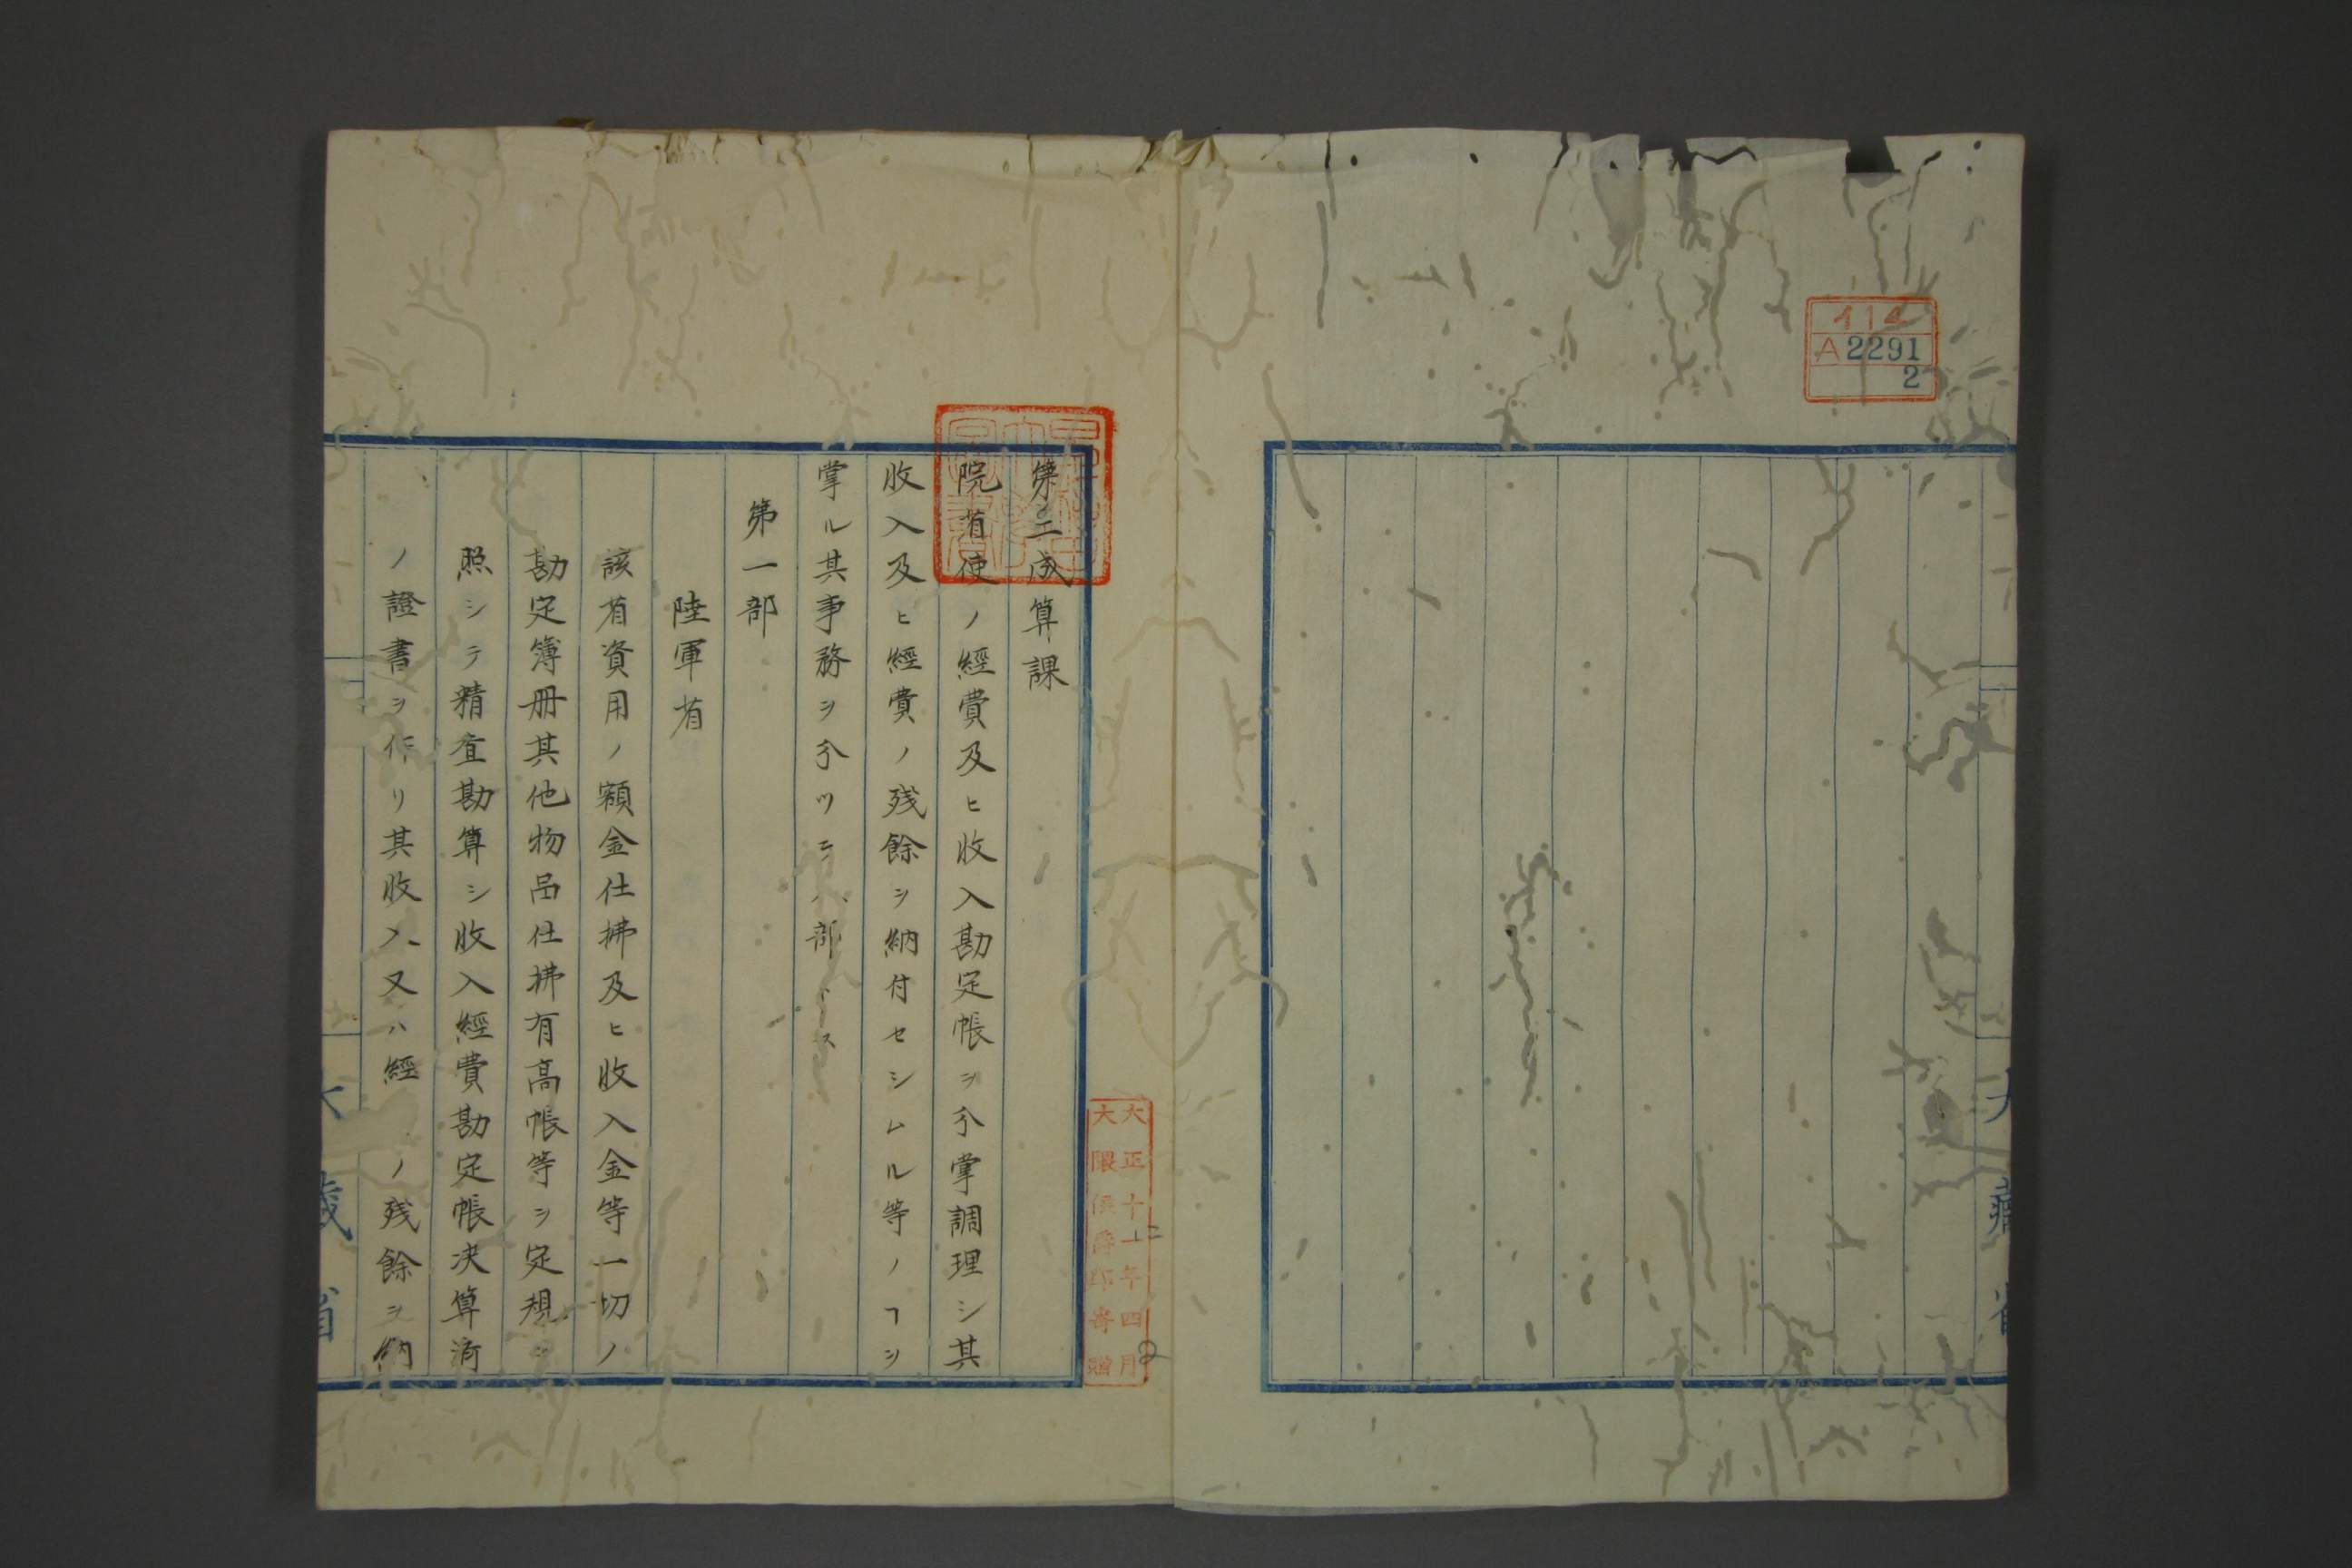 イ14
A2291
2
大藏省
第二成算課
院省使ノ經費及ヒ收入勘定帳ヲ分掌調理シ其
收入及ヒ經費ノ残餘ヲ納付セシムル等ノヿヲ
掌ル其事務ヲ分ツテ八部トス
第一部
陸軍省
該省資用ノ額金仕拂及ヒ收入金等一切ノ
勘定簿册其他物品仕拂有高帳等ヲ定規ニ
照シテ精査勘算シ收入經費勘定帳决算済
ノ證書ヲ作リ其收入又ハ經ノ残餘ヲ納
大正十一年四月
大隈侯爵邸寄贈
二
2